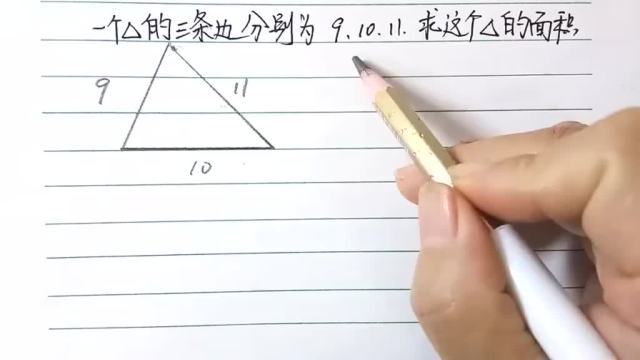 一个△的三条边分别为 9.10.11. 求这个△的面积
9
11
10